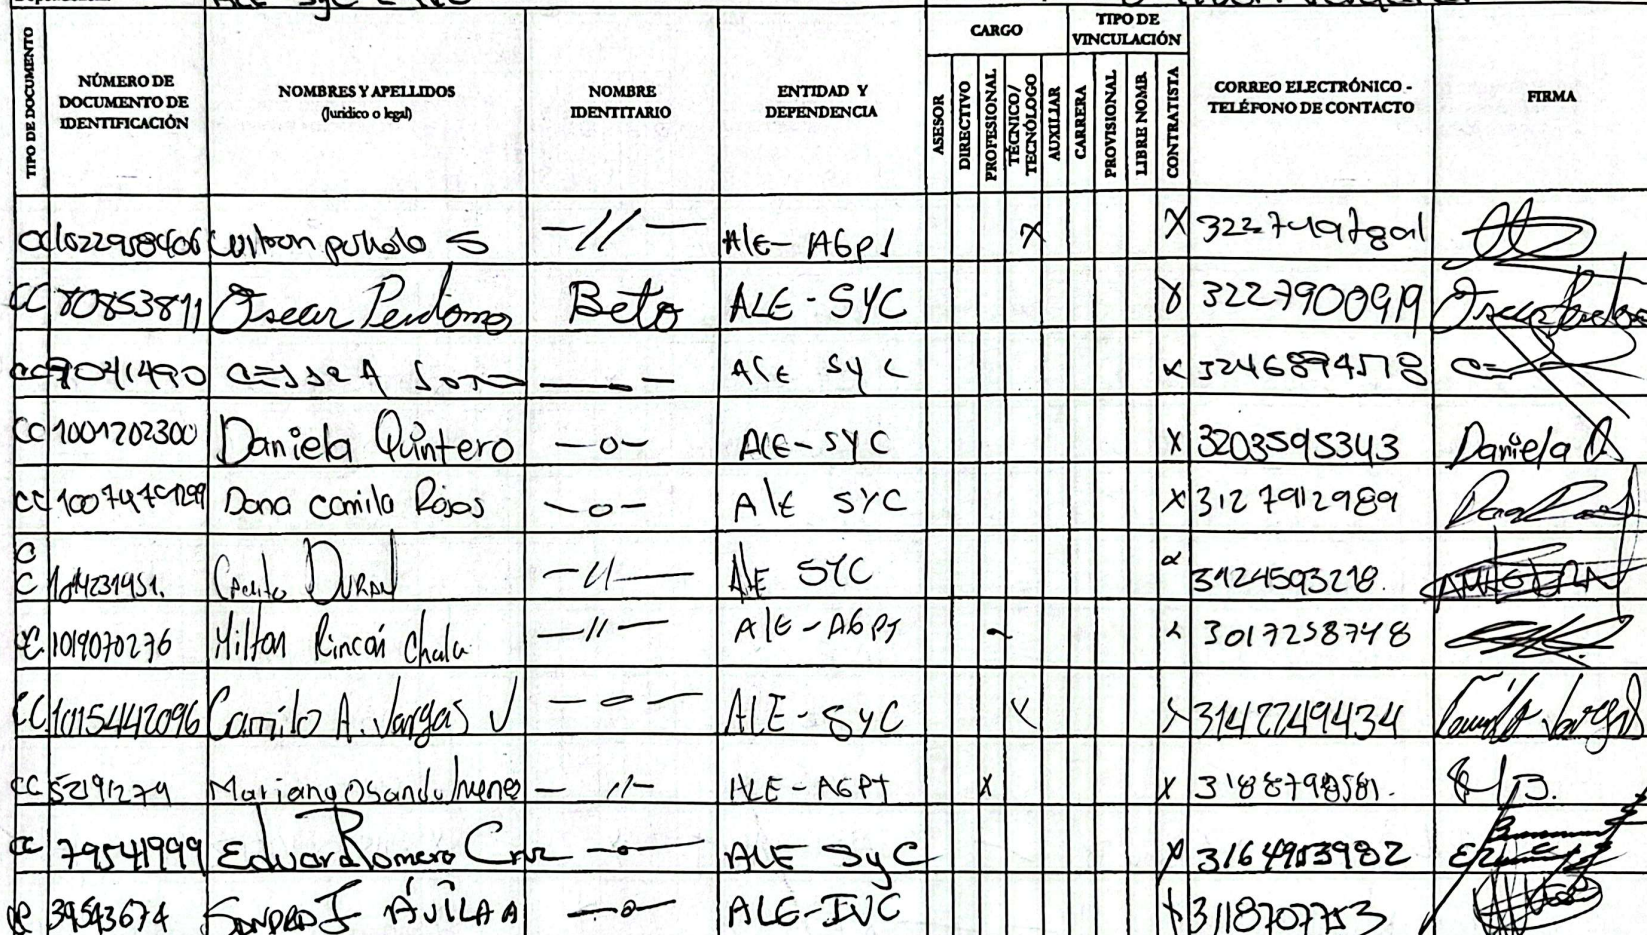 ALE SyC
CARGO
TIPO DE VINCULACIÓN
TIPO DE DOCUMENTO
NÚMERO DE DOCUMENTO DE IDENTIFICACIÓN
NOMBRES Y APELLIDOS (Jurídico o legal)
NOMBRE IDENTITARIO
ENTIDAD Y DEPENDENCIA
ASESOR
DIRECTIVO
PROFESIONAL
TÉCNICO/ TECNÓLOGO
AUXILIAR
CARRERA
PROVISIONAL
LIBRE NOMB
CONTRATISTA
CORREO ELECTRÓNICO - TELÉFONO DE CONTACTO
FIRMA
CC 1022958406 S —//— ALE- AGPJ X X
CC 80853811 Oscar Perdomo Beto ALE-SYC X 3227900919
CC A ALE SYC X 3246894578
CC 1001202300 Daniela Quintero —o— ALE-SYC X 3203595343 Daniela Q
CC Dana Camila Rojas —o— ALE SYC X 3127912989
CC Durán —//— ALE SYC X 3124593218.
CC. 1019070276 Milton Rincón Chala —//— ALE-AGPJ X 3017258748
CC. 1015442096 Camilo A. Vargas V —o— ALE-SYC X X 3142249434 Camilo Vargas
CC 52191274 —//— ALE-AGPJ X X 3188798581.
CC 79541999 Eduard Romero Cruz —o— ALE SyC X 3164953982
CC 39543674 ÁVILA A —o— ALE-IVC X 3118707753